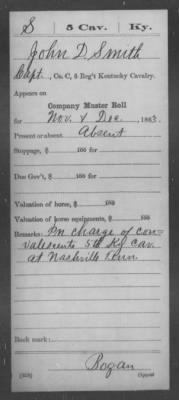 S | 5 Cav. | Ky.
John D. Smith
Capt., Co. C, 5 Reg't Kentucky Cavalry.
Appears on
Company Muster Roll
for Nov. & Dec., 1863.
Present or absent Absent
Stoppage, $ 100 for
Due Gov't, $ 100 for
Valuation of horse, $ 100
Valuation of horse equipments, $ 100
Remarks: In charge of con-
valescents 5th Ky Cav.
at Nashville Tenn.
Book mark:
Bogan
(858) Copyist.